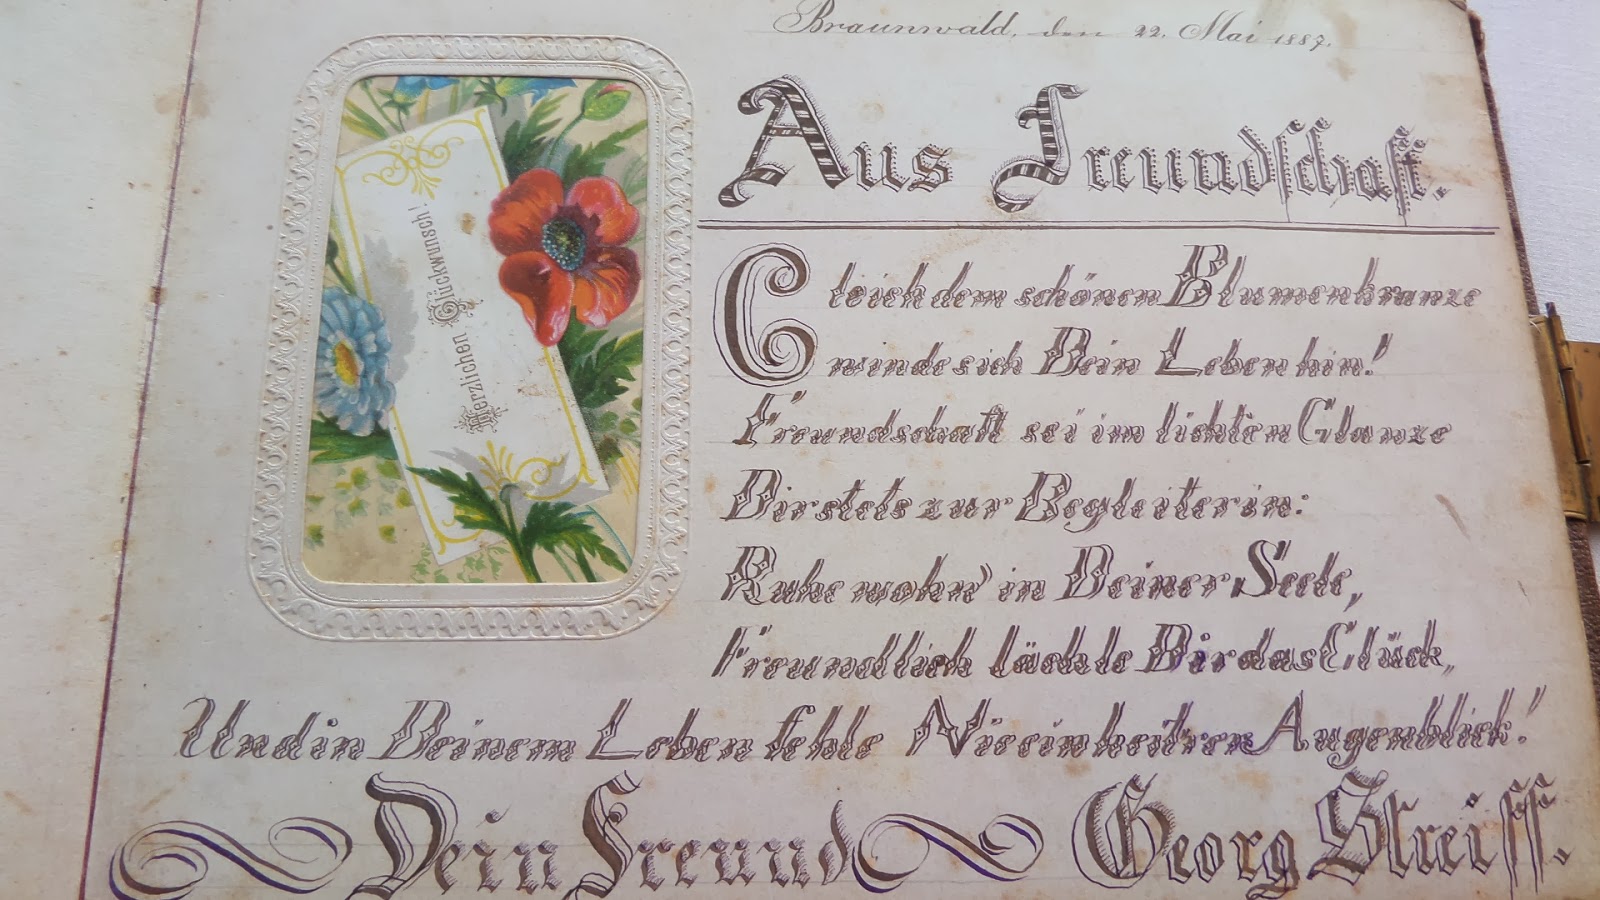 Braunwald, den 22. Mai 1887.
Aus Freundschaft.
Herzlichen Glückwunsch!
Gleich dem schönen Blumenkranze
winde sich Dein Leben hin!
Freundschaft sei im lichten Glanze
Dir stets zur Begleiterin:
Ruhe wohn' in Deiner Seele,
Freundlich lächle Dir das Glück,
Und in Deinem Leben fehle Nie ein heitrer Augenblick!
Dein Freund Georg Streiff.